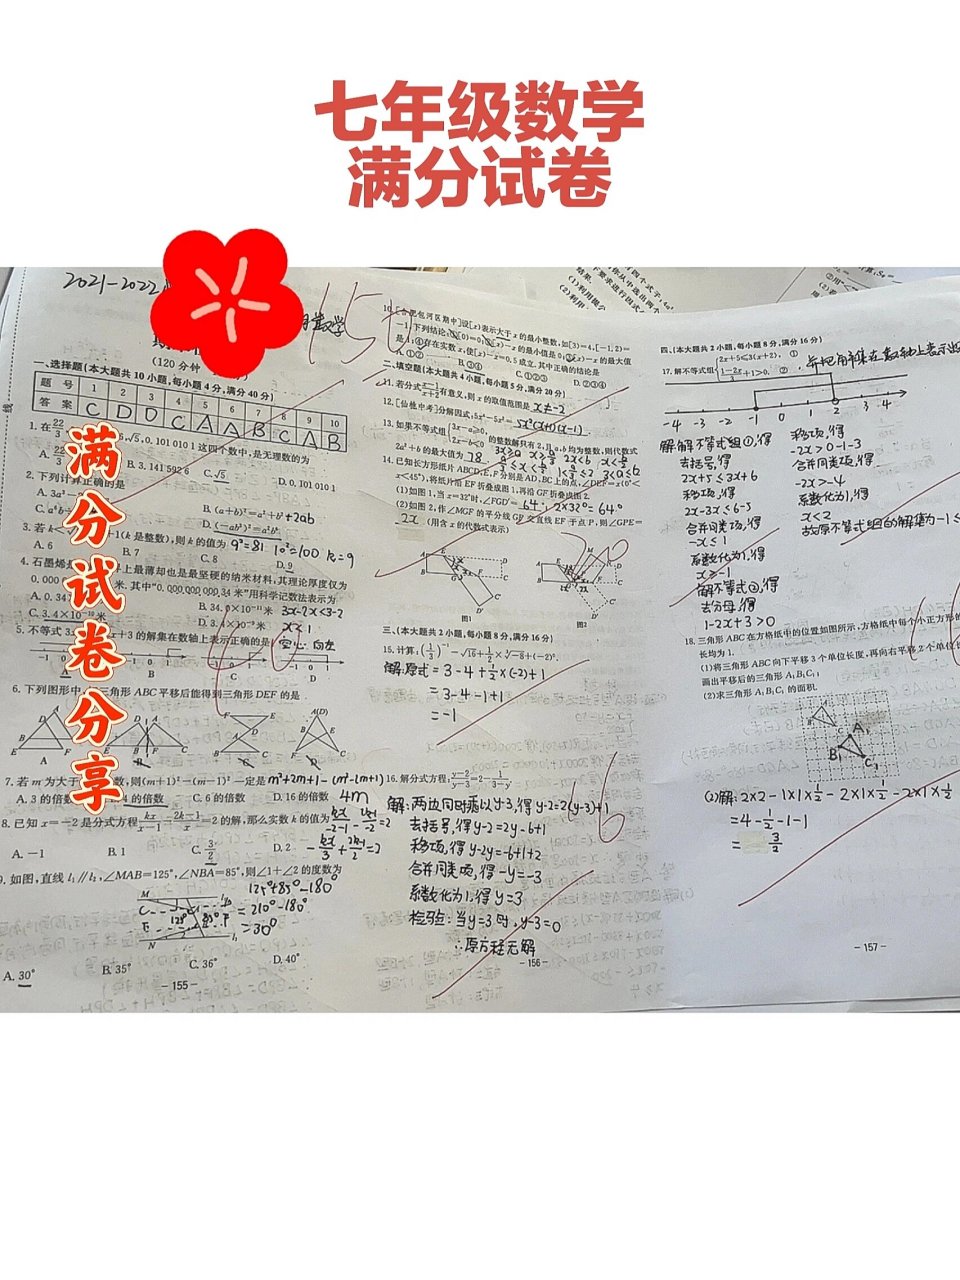 七年级数学
满分试卷
满分试卷分享
2021-2022
(120分钟
一、选择题(本大题共10小题,每小题4分,满分40分)
题 号 1 2 3 4 5 6 7 8 9 10
答 案 C D D C A A B C A B
√5,0.101 010 1这四个数中,是无理数的为
B. 3.141 592 6 C. √5 D. 0.101 010 1
2. 下列计算正确的是
B. (a+b)²=a²+b² +2ab
D. (-ab³)²=a²b⁶
(k是整数),则k的值为 9²=81 10²=100 k=9
A. 6 B. 7 C. 8 D. 9
上最薄却也是最坚硬的纳米材料,其理论厚度仅为
米,其中“0.000 000 000 34米”用科学记数法表示为
3x-2x<3-2
C. 3.4×10⁻¹⁰米
x<1
x+3的解集在数轴上表示正确的是
空心 向左
6. 下列图形中,
三角形ABC平移后能得到三角形DEF的是
A B C D
7. 若m为大于
数,则(m+1)²-(m-1)²一定是 m²+2m+1-(m²-2m+1)
A. 3的倍数 4的倍数 C. 6的倍数 D. 16的倍数 4m
8. 已知x=-2是分式方程kx/(x-1)-(2k-1)/x=2的解,那么实数k的值为
A. -1 B. 1 C. 3/2 D. 2
9. 如图,直线l₁∥l₂,∠MAB=125°,∠NBA=85°,则∠1+∠2的度数为
125°+85°-180°
=210°-180°
=30°
A. 30° B. 35° C. 36° D. 40°
- 155 -
10. [合肥包河区期中]设[x)表示大于x的最小整数,如[3)=4,[-1.2)=
-1,下列结论:①[0)=0;②[x)-x的最小值是0;③[x)-x的最大值
是1;④存在实数x,使[x)-x=0.5成立.其中正确的结论是
A. ①② B. ③④ C. ①②③ D. ②③④
二、填空题(本大题共4小题,每小题5分,满分20分)
11. 若分式(x-1)/(x+2)有意义,则x的取值范围是 x≠-2
12. [仙桃中考]分解因式:5x⁴-5x²= 5x²(x+1)(x-1)
13. 如果不等式组{3x-a≥0, 2x-b≤0的整数解只有2,且a、b均为整数,则代数式
2a²+b的最大值为 78
14. 已知长方形纸片ABCD,E,F分别是AD,BC上的点,∠DEF=x(0°<
x<45°),将纸片沿EF折叠成图1,再沿GF折叠成图2.
(1)如图1,当x=32°时,∠FGD′= 64° 2×32°=64°
(2)如图2,作∠MGF的平分线GP交直线EF于点P,则∠GPE=
2x (用含x的代数式表示)
图1 图2
三、(本大题共2小题,每小题8分,满分16分)
15. 计算:(1/3)⁻¹-√16+1/2×∛-8+(-2)⁰.
解:原式=3-4+1/2×(-2)+1
=3-4-1+1
=-1
16. 解分式方程:(y-2)/(y-3)=2-1/(3-y).
解:两边同时乘以y-3,得y-2=2(y-3)+1
去括号,得y-2=2y-6+1
移项,得y-2y=-6+1+2
合并同类项,得-y=-3
系数化为1,得y=3
检验:当y=3时,y-3=0
∴原方程无解
- 156 -
四、(本大题共2小题,每小题8分,满分16分)
17. 解不等式组{2x+5≤3(x+2), ① (1-2x)/3+1>0. ②
-4 -3 -2 -1 0 1 2 3 4
解:解不等式组①,得
去括号,得
2x+5≤3x+6
移项,得
2x-3x≤6-5
合并同类项,得
-x≤1
系数化为1,得
x≥-1
解不等式②,得
去分母,得
1-2x+3>0
移项,得
-2x>0-1-3
合并同类项,得
-2x>-4
系数化为1,得
x<2
故原不等式组的解集为-1≤
18. 三角形ABC在方格纸中的位置如图所示,方格纸中每个小正方形的
长均为1.
(1)将三角形ABC向下平移3个单位长度,再向右平移2个单位
画出平移后的三角形A₁B₁C₁
(2)求三角形A₁B₁C₁的面积.
(2)解:2×2-1×1×1/2-2×1×1/2-2×1×1/2
=4-1/2-1-1
=3/2
- 157 -